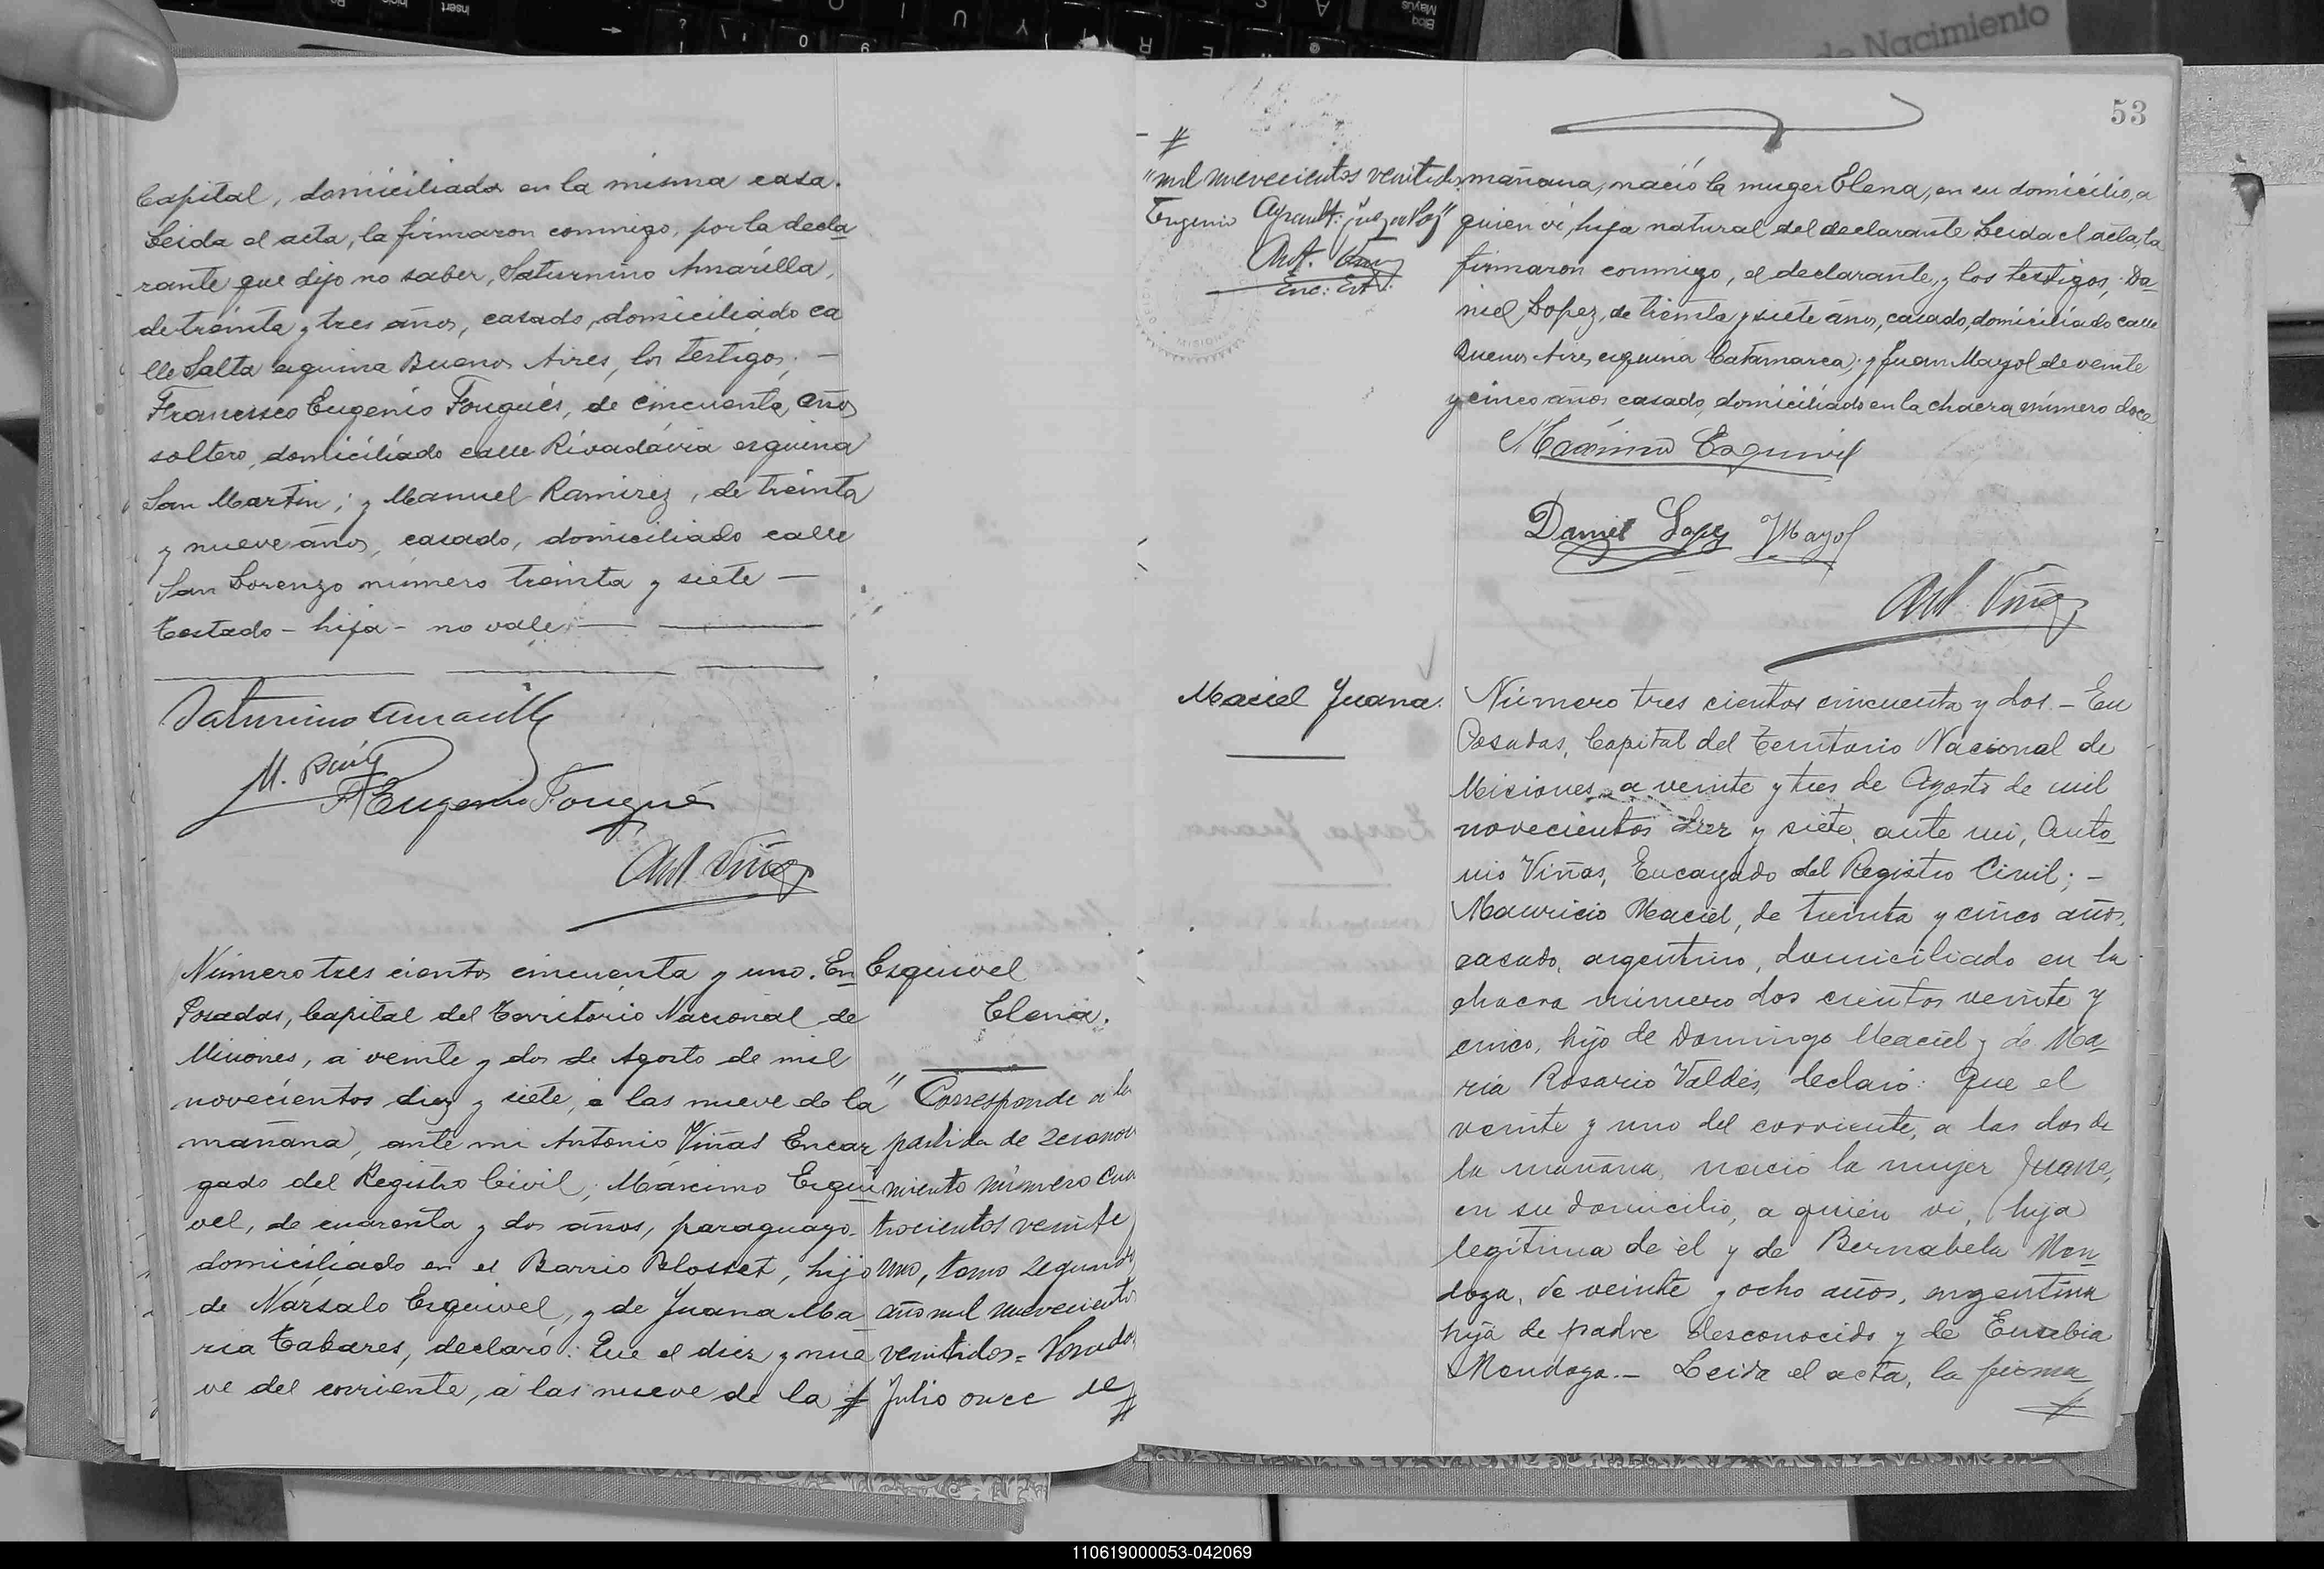 Capital, domiciliada en la misma casa.
Leida el acta, la firmaron conmigo, por la decla
rante que dijo no saber, Saturnino Amarilla,
de treinta y tres años, casado, domiciliado ca
lle Salta esquina Buenos Aires, los testigos; —
Francisco Eugenio Fouqués, de cincuenta años
soltero, domiciliado calle Rivadavia esquina
San Martin; y Manuel Ramirez, de treinta
y nueve años, casado, domiciliado calle
San Lorenzo número treinta y siete —
Testado - hija - no vale
Saturnino Amarilla
F Eugenio Fouqués
Ant Viñas
Número tres cientos cincuenta y uno. En
Posadas, Capital del Territorio Nacional de
Misiones, a veinte y dos de Agosto de mil
novecientos diez y siete, a las nueve de la
mañana, ante mi Antonio Viñas Encar
gado del Registro Civil; Máximo Esqui
vel, de cuarenta y dos años, paraguayo
domiciliado en el Barrio Blosset, hijo
de Narsalo Esquivel, y de Juana Ma
ria Cabares, declaró: Que el diez y nue
ve del corriente, a las nueve de la #
Esquivel
Elena.
" Corresponde a la
partida de reconoci
miento número cua
trocientos veinte
uno, tomo segundo
año mil nuevecientos
veintidos = Posadas
Julio once de
#
53
#
"mil nuevecientos veintidos
Eugenio Ayrault: Juez de Paz"
Ant. Viñas
Enc: Ect.
mañana, nació la muger Elena, en su domicilio, a
quien vi, hija natural del declarante Leida el acta, la
firmaron conmigo, el declarante, y los testigos; Da
niel Lopez, de treinta y siete años, casado, domiciliado calle
Buenos Aires esquina Catamarca; y Juan Mayol de veinte
y cinco años casado, domiciliado en la chacra número doce
Maximo Esquivel
Daniel Lopez JMayol
Ant Viñas
Maciel Juana.
Número tres cientos cincuenta y dos. - En
Posadas, Capital del Territorio Nacional de
Misiones, a veinte y tres de Agosto de mil
novecientos diez y siete, ante mi, Anto
nio Viñas, Encargado del Registro Civil; -
Mauricio Maciel, de treinta y cinco años,
casado, argentino, domiciliado en la
chacra número dos cientos veinte y
cinco, hijo de Domingo Maciel y de Ma
ria Rosario Valdés, declaró: Que el
veinte y uno del corriente, a las dos de
la mañana, nació la mujer Juana,
en su domicilio, a quien vi, hija
legítima de él y de Bernabela Men
doza, de veinte y ocho años, argentina
hija de padre desconocido y de Eusebia
Mendoza. - Leida el acta, la firma
#
110619000053-042069